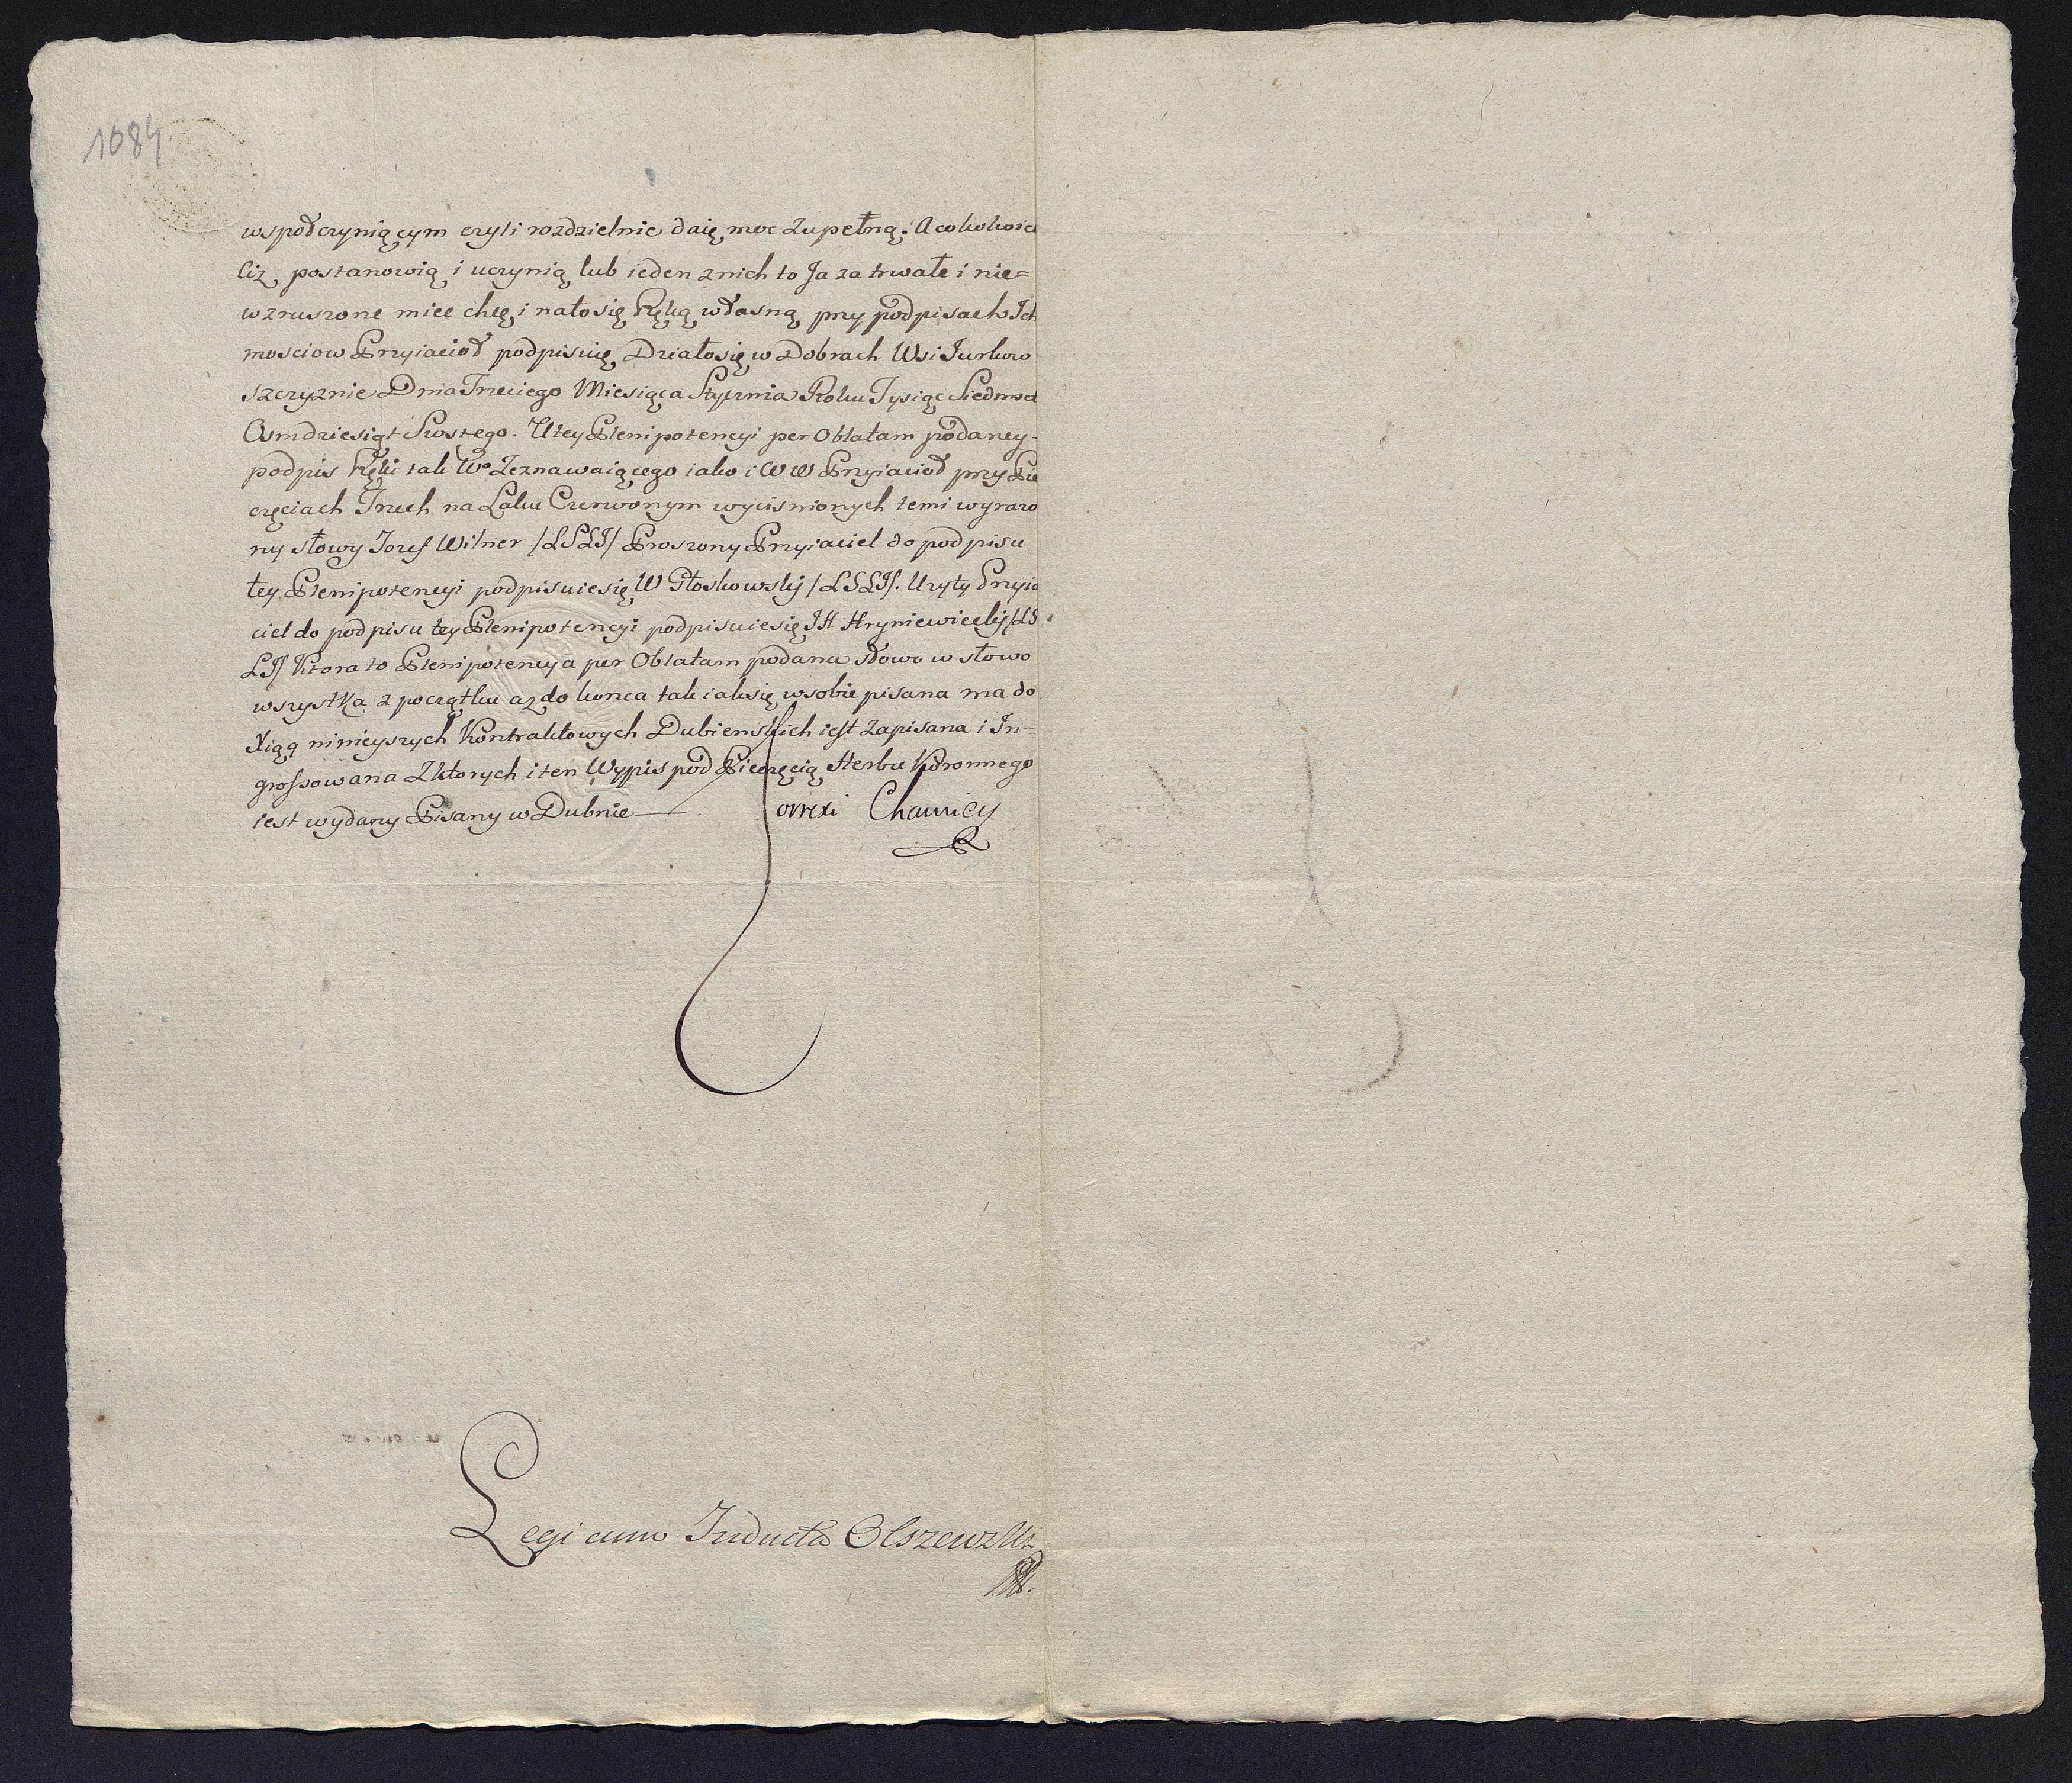 1084
wspołczyniącym czyli rozdzielnie daię moc Zupełną. A cokolwiek
liż postanowią i uczynią lub ieden z nich to Ja za trwałe i nie=
wzruszone miec chcę i nato się Ręką własną przy podpisach Ich
mosciow Przyiacioł podpisuię Działo się w Dobrach Wsi Jurkow
szczyznie Dnia Trzeciego Miesiąca Stycznia Roku Tysiąc Siedmset
Osmdziesiąt Szostego. U tey Plenipotencyi per Oblatam podaney
podpis Ręki tak Wo Zeznawaiącego iako i W W Przyiacioł przy Pie
częciach Trzech na Laku Czerwonym wycisnionych temi wyrazo
ny słowy Jozef Wilner /LSLJ/ Proszony Przyiaciel do podpisu
tey Plenipotencyi podpisuie się W Głoskowski /LSLJ/. Uzyty Przyia
ciel do podpisu tey Plenipotencyi podpisuie się JH Hryniewiecki /LS
LJ/ Ktora to Plenipotencya per Oblatam podana słowo w słowo
wszystka z początku az do konca tak iak się w sobie pisana ma do
Xiąg ninieyszych Kontraktowych Dubienskich iest Zapisana i In=
grossowana Z ktorych i ten Wypis pod Pieczęcią Herbu Koronnego
iest wydany Pisany w Dubnie — . orrexi Chamicy
Legi cum Inducta Olszewski